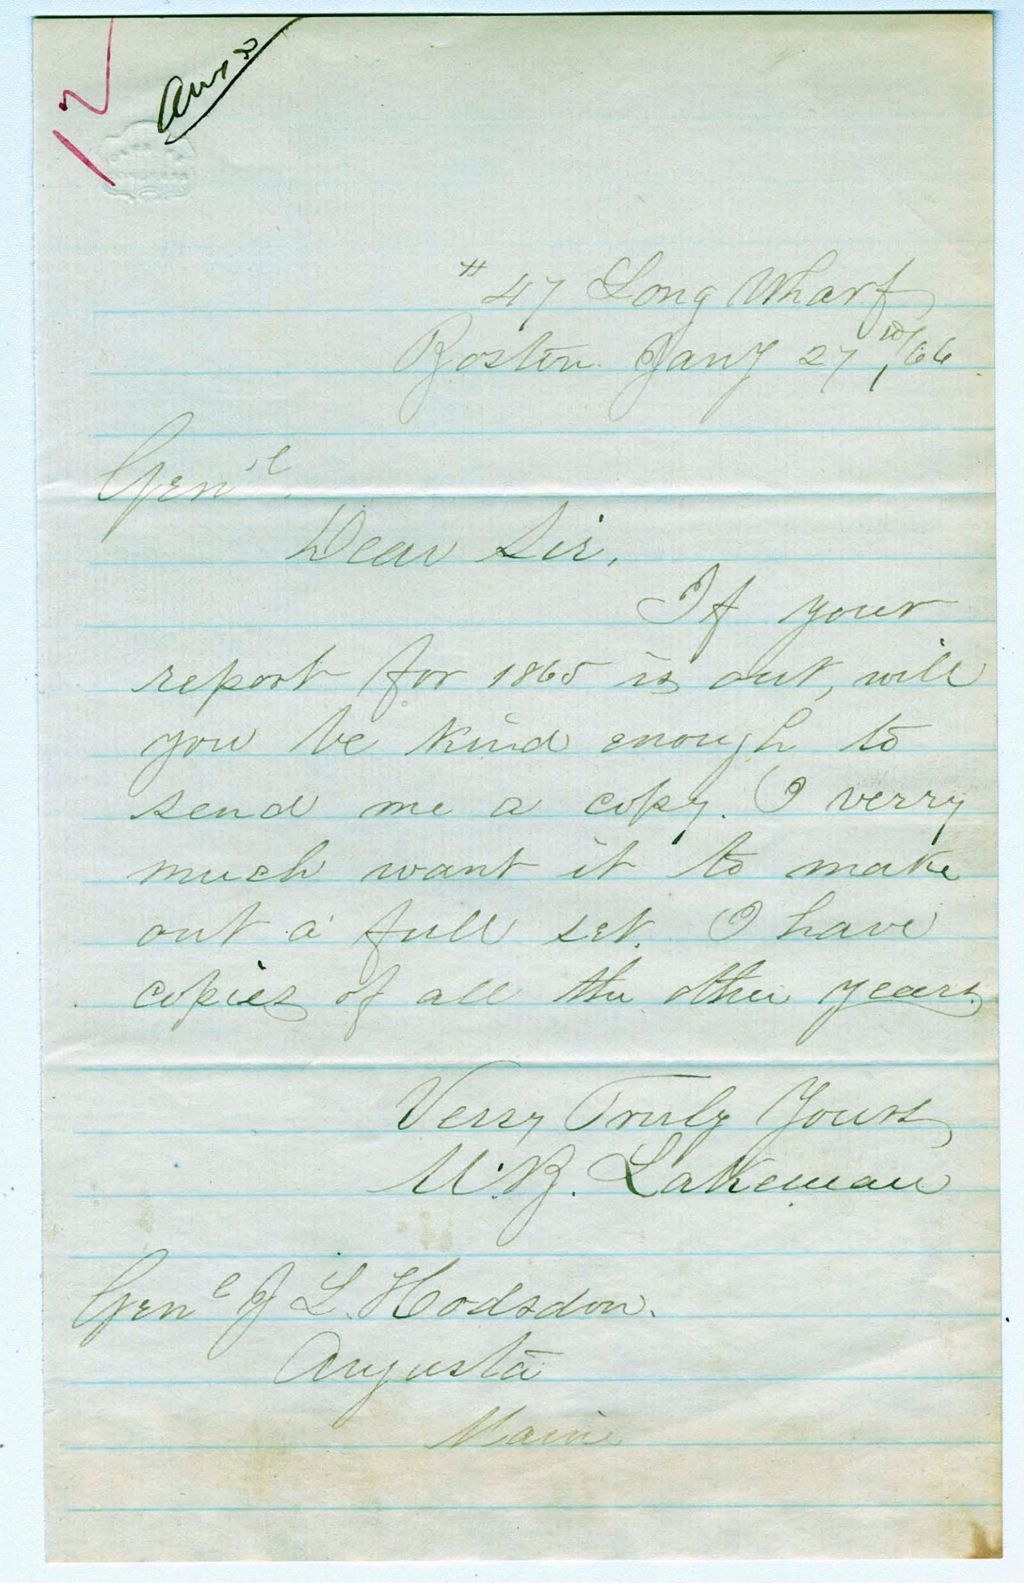 12
Ansd
# 47 Long Wharf
Boston Jany 27th, /66
Gen'l.
Dear Sir,
If your
report for 1865 is out, will
you be kind enough to
send me a copy. I verry
much want it to make
out a full set. I have
copies of all the other years.
Verry Truly Yours,
Lakeman
Genl J L. Hodsdon.
Augusta
Maine